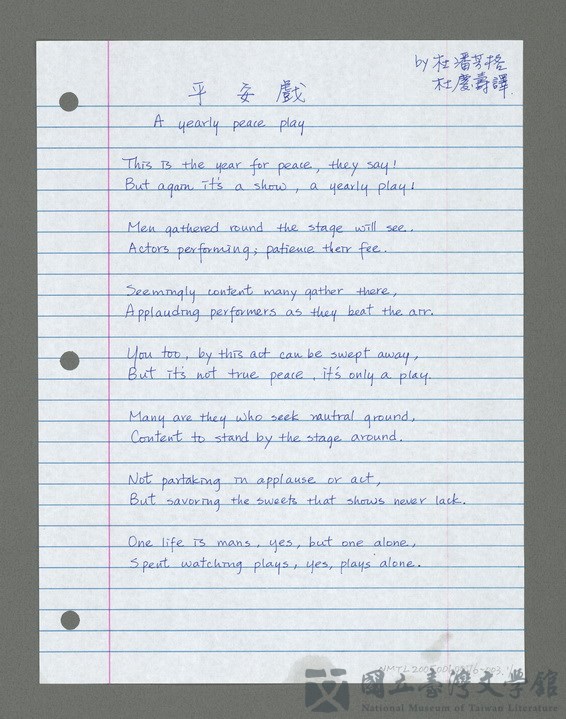 by 杜潘芳格
杜慶壽譯
平安戲
A yearly peace play
This is the year for peace, they say!
But again it's a show, a yearly play!
Men gathered round the stage will see.
Actors performing; patience their fee.
Seemingly content many gather there,
Applauding performers as they beat the air.
You too, by this act can be swept away,
But it's not true peace, it's only a play.
Many are they who seek nautral ground,
Content to stand by the stage around.
Not partaking in applause or act,
But savoring the sweets that shows never lack.
One life is mans, yes, but one alone,
Spent watching plays, yes, plays alone.
國立臺灣文學館
National Museum of Taiwan Literature